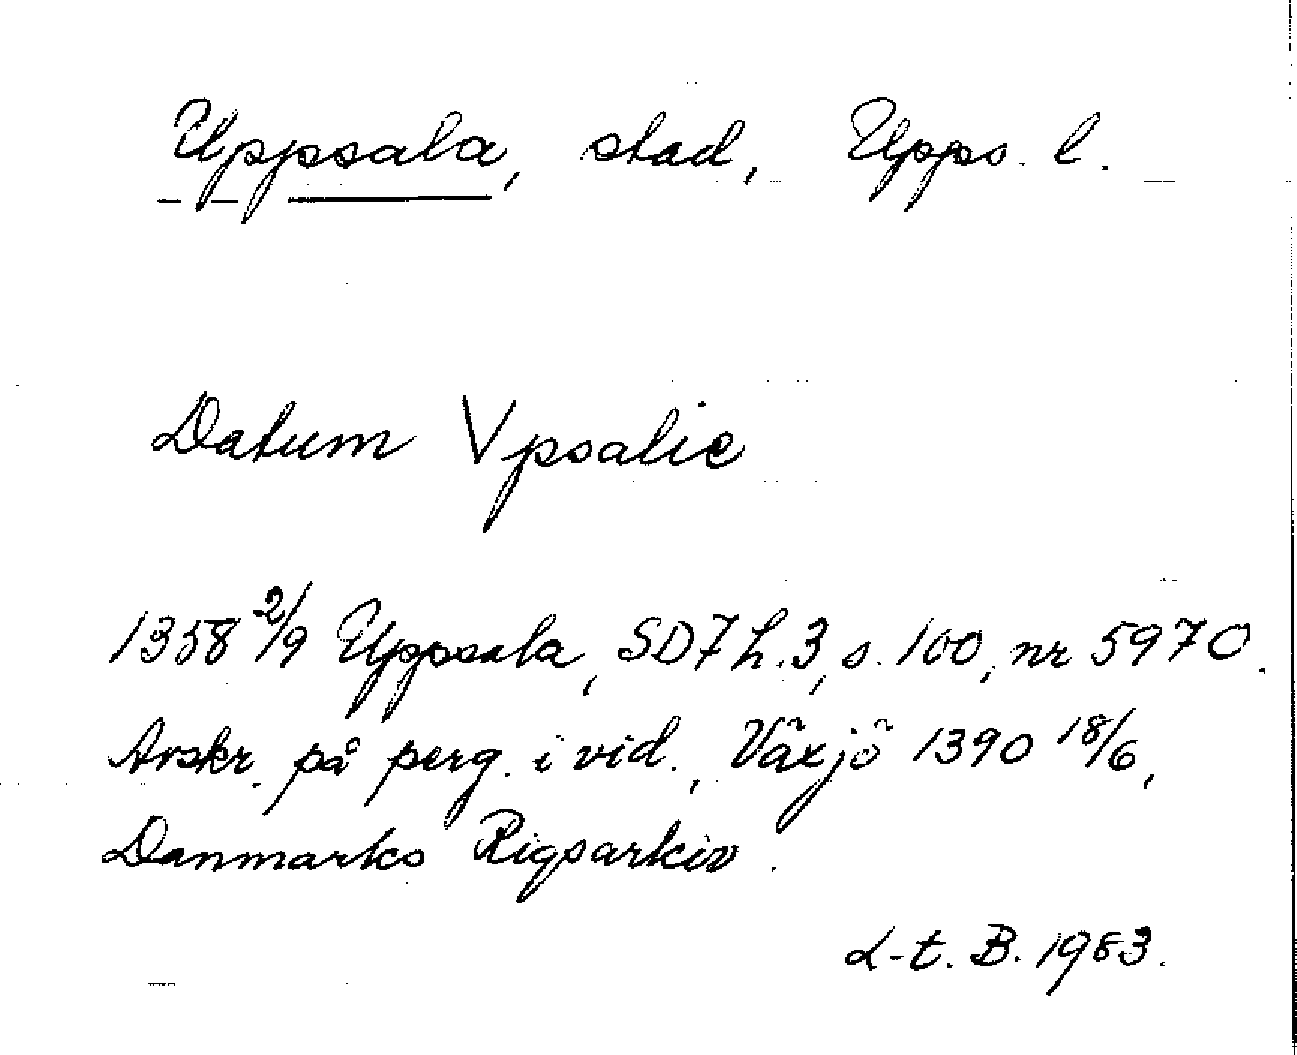 Uppsala, stad, Upps. l.
Datum Vpsalie
1358 2/9 Uppsala, SD7 h.3, s. 100, nr 5970.
Avskr. på perg. i vid., Växjö 1390 18/6,
Danmarks Rigsarkiv.
L-t. B. 1983.